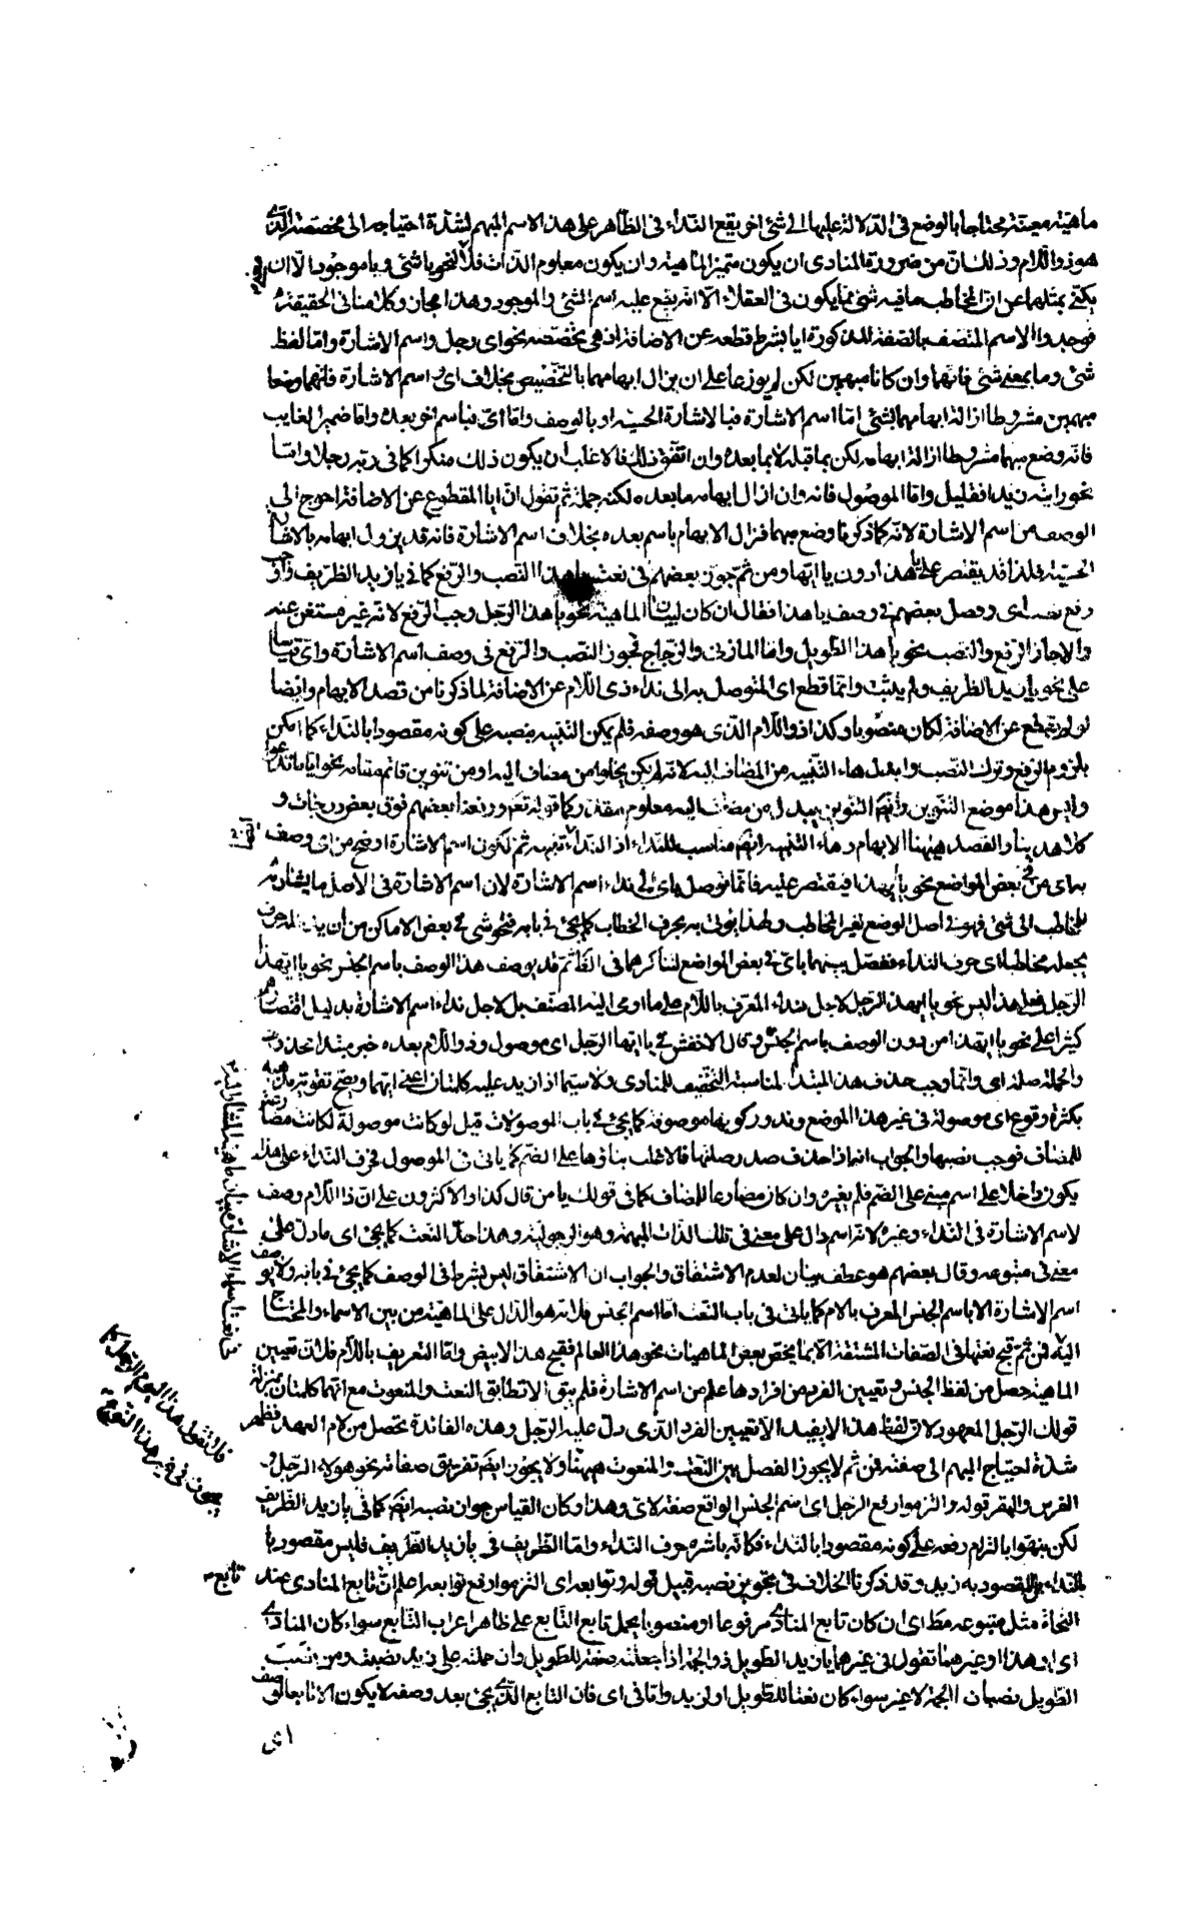 ماهيته معينة محتاجا بالوضع فى الدلالة عليها الى شئ اخر يقع النداء فى الظاهر على هذا الاسم المبهم لشدة احتياجه الى مخصصه الذى
هو ذو اللام وذلك ان من ضرورة المنادى ان يكون متميز الماهية وان يكون معلوم الذات فلا نحو يا شئ ويا موجود الا ان
يكنى بمثلهما عن ان المخاطب ما فيه شئ مما يكون فى العقلاء الا انه يقع عليه اسم الشئ والموجود وهذا مجاز وكلامنا فى الحقيقة
فوجدوا الاسم المتصف بالصفة المذكورة ايا بشرط قطعه عن الاضافة اذ هى تخصصه نحو اى رجل واسم الاشارة واما لفظ
شئ وما بمعنى شئ فانهما وان كانا مبهمين لكن لم يوضعا على ان يزال ابهامهما بالتخصيص بخلاف اى واسم الاشارة فانهما وضعا
مبهمين مشروطا ازالة ابهامهما بشئ اما اسم الاشارة فبالاشارة الحسية او بالوصف واما اى فباسم اخر بعده واما ضمير الغايب
فانه وضع مبهما مشروطا ازالة ابهامه لكن بما قبله لا بما بعده وان اتفق ذلك فالاغلب ان يكون ذلك منكرا كما فى ربه رجلا واما
نحو رايته زيدا فقليل واما الموصول فانه وان ازال ابهامه ما بعده لكنه جملة ثم نقول ان ايا المقطوع عن الاضافة احوج الى
الوصف من اسم الاشارة لانه كما ذكرنا وضع مبهما فزال الابهام باسم بعده بخلاف اسم الاشارة فانه قد يزول ابهامه بالاشارة
الحسية فلذا قد يقتصر على يا هذا دون يا ايها ومن ثم جوز بعضهم فى نعت هذا النصب والرفع كما فى يا زيد الظريف
رفع نعت اى وفصل بعضهم فى وصف يا هذا فقال ان كان لبيان الماهية نحو يا هذا الرجل وجب الرفع لانه غير مستغن عنه
والا جاز الرفع والنصب نحو يا هذا الطويل واما المازنى والزجاج فجوز النصب والرفع فى وصف اسم الاشارة واى قياسا
على نحو يا زيد الظريف ولم يثبت وانما قطع اى المتوصل به الى نداء ذى اللام عن الاضافة لما ذكرنا من قصد الابهام وايضا
لو لم يقطع عن الاضافة لكان منصوبا وكذا ذو اللام الذى هو وصفه فلم يمكن التنبيه بنصبه على كونه مقصودا بالنداء كما امكن
بلزوم الرفع وترك النصب وابدل هاء التنبيه من المضاف اليه لانه لم يكن يخلو من مضاف اليه او من تنوين قائم مقامه نحو اياما تدعوا
وليس هذا موضع التنوين وايضا التنوين يبدل من مضاف اليه معلوم مقدر كما قوله تعالى ورفعنا بعضهم فوق بعض درجات و
كلا هدينا والقصد ههنا الابهام وهاء التنبيه ايضا مناسب للنداء اذ النداء تنبيه ثم لكون اسم الاشارة اوضح من اى وصف
به اى فى بعض المواضع نحو يا ايهذا فيقتصر عليه فانما توصل باى الى نداء اسم الاشارة لان اسم الاشارة فى الاصل ما يشار به
للمخاطب الى شئ فهو فى اصل الوضع لغير المخاطب ولهذا يؤتى به بحرف الخطاب كما يجئ فى بابه
يجعله مخاطبا اى حرف النداء ففصل بينهما باى فى بعض المواضع لتناكرهما فى الظاهر ثم قد يوصف هذا الوصف باسم الجنس نحو يا ايهذا
الرجل فعلى هذا ليس نحو يا ايهذا الرجل لاجل نداء المعرف باللام على ما اومى اليه المصنف بل لاجل نداء اسم الاشارة بدليل اقتصارهم
كثيرا على نحو يا ايهذا من دون الوصف باسم الجنس وقال الاخفش فى يا ايها الرجل اى موصول وذو اللام بعده خبر مبتدا محذوف
والجملة صلة اى وانما وجب حذف هذا المبتدا لمناسبة التخفيف للمنادى ولا سيما اذا زيد عليه كلمتان اعنى ايها ويصح تقوية مذهبه
بكثرة وقوع اى موصولة فى غير هذا الموضع وندور كونها موصوفة كما يجئ فى باب الموصولات قيل لو كانت موصولة لكانت مضارعة
للمضاف فوجب نصبها والجواب انه اذا حذف صدر صلتها فالاغلب بناؤها على الضم كما ياتى فى الموصول فحرف النداء على هذا
يكون داخلا على اسم مبنى على الضم فلم يغيره وان كان مضارعا للمضاف كما فى قولك يا من قال كذا والاكثرون على ان ذا اللام وصف
لاسم الاشارة فى النداء وغيره لانه اسم دال على معنى فى تلك الذات المبهمة وهو الرجولية وهذا حد النعت كما يجئ اى ما دل على
معنى فى متبوعه وقال بعضهم هو عطف بيان لعدم الاشتقاق والجواب ان الاشتقاق ليس بشرط فى الوصف كما يجئ فى بابه ولا يوصف
اسم الاشارة الا باسم الجنس المعرف بالام كما ياتى فى باب النعت اما اسم الجنس فلانه هو الدال على الماهية من بين الاسماء والمحتاج
اليه فمن ثم قبح نعتها فى الصفات المشتقة الا بما يخص بعض الماهيات نحو هذا العالم فقبح هذا الابيض واما التعريف باللام فلان تعيين
الماهية حصل من لفظ الجنس وتعيين الفرد من افرادها علم من اسم الاشارة فلم يبق الا تطابق النعت والمنعوت مع انهما كلمتان بمنزلة
قولك الرجل المعهود لان لفظ هذا لا يفيد الا تعيين الفرد الذى دل عليه الرجل وهذه الفائدة تحصل من لام العهد فظهر
شدة احتياج المبهم الى صفته فمن ثم لا يجوز الفصل بين النعت والمنعوت ههنا ولا يجوز ايضا تفريق صفاته نحو هؤلاء الرجل و
الفرس والبقر قوله والتزموا رفع الرجل اى اسم الجنس الواقع صفة لاى وهذا وكان القياس جواز نصبه ايضا كما فى يا زيد الظريف
لكن نبهوا بالتزام رفعه على كونه مقصودا بالنداء فكانه باشره حرف النداء واما الظريف فى يا زيد الظريف فليس مقصودا با
بالنداء بل المقصود به زيد وقد ذكرنا الخلاف فى تجويز نصبه قبيل قوله وتوابعه اى التزموا رفع توابعه اعلم ان تابع المنادى عند
النحاة مثل متبوعه مطلقا اى ان كان تابع المنادى مرفوعا او منصوبا يحمل تابع التابع على ظاهر اعراب التابع سواء كان المنادى
اى او هذا او غيرهما تقول فى غيرهما يا زيد الطويل ذو الجمة اذا جعلته صفة للطويل وان حملته على زيد نصبت ومن نصب
الطويل نصبهما لا غير سواء كان نعتا للطويل او لزيد واما فى اى فان التابع الذى يجئ بعد وصفه لا يكون الا تابعا لوصف
اى
تابع